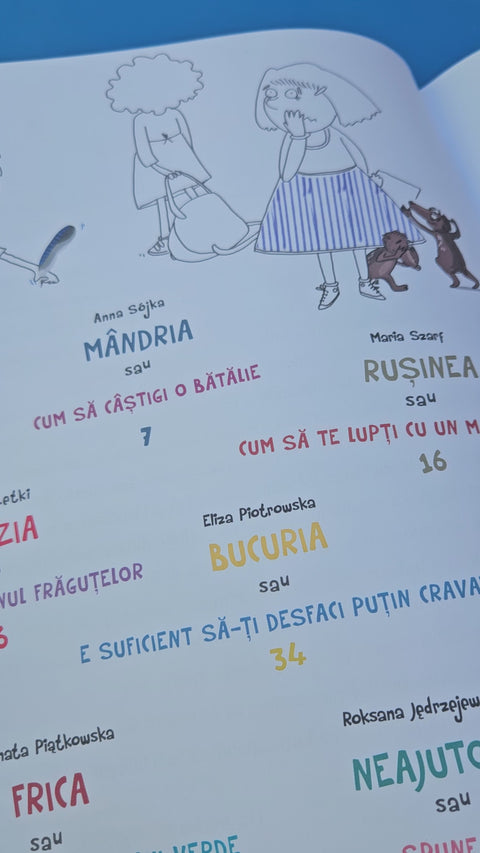 Anna Sójka
MÂNDRIA
sau
CUM SĂ CÂȘTIGI O BĂTĂLIE
7
Maria Szarf
RUȘINEA
sau
CUM SĂ TE LUPȚI CU UN
16
FRĂGUȚELOR
Eliza Piotrowska
BUCURIA
sau
E SUFICIENT SĂ-ȚI DESFACI PUȚIN
34
Piątkowska
FRICA
sau
VERDE
Roksana
sau